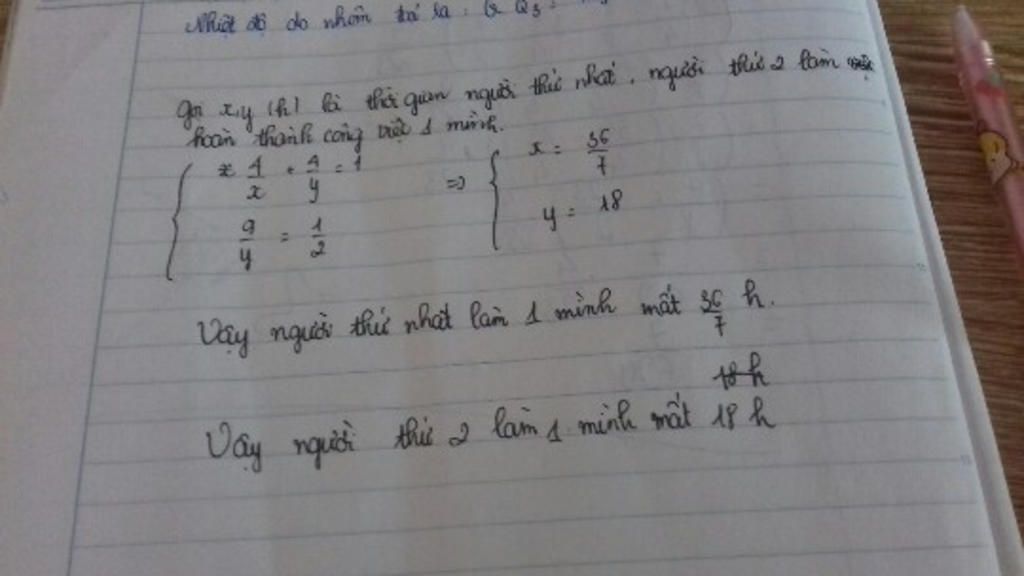 Nhiệt độ do nhôm toả ra : Q Q3 =
Gọi x,y (h) là thời gian người thứ nhất, người thứ 2 làm
hoàn thành công việc 1 mình.
4/x + 4/y = 1 => x = 36/7
9/y = 1/2 y = 18
Vậy người thứ nhất làm 1 mình mất 36/7 h.
18 h
Vậy người thứ 2 làm 1 mình mất 18 h